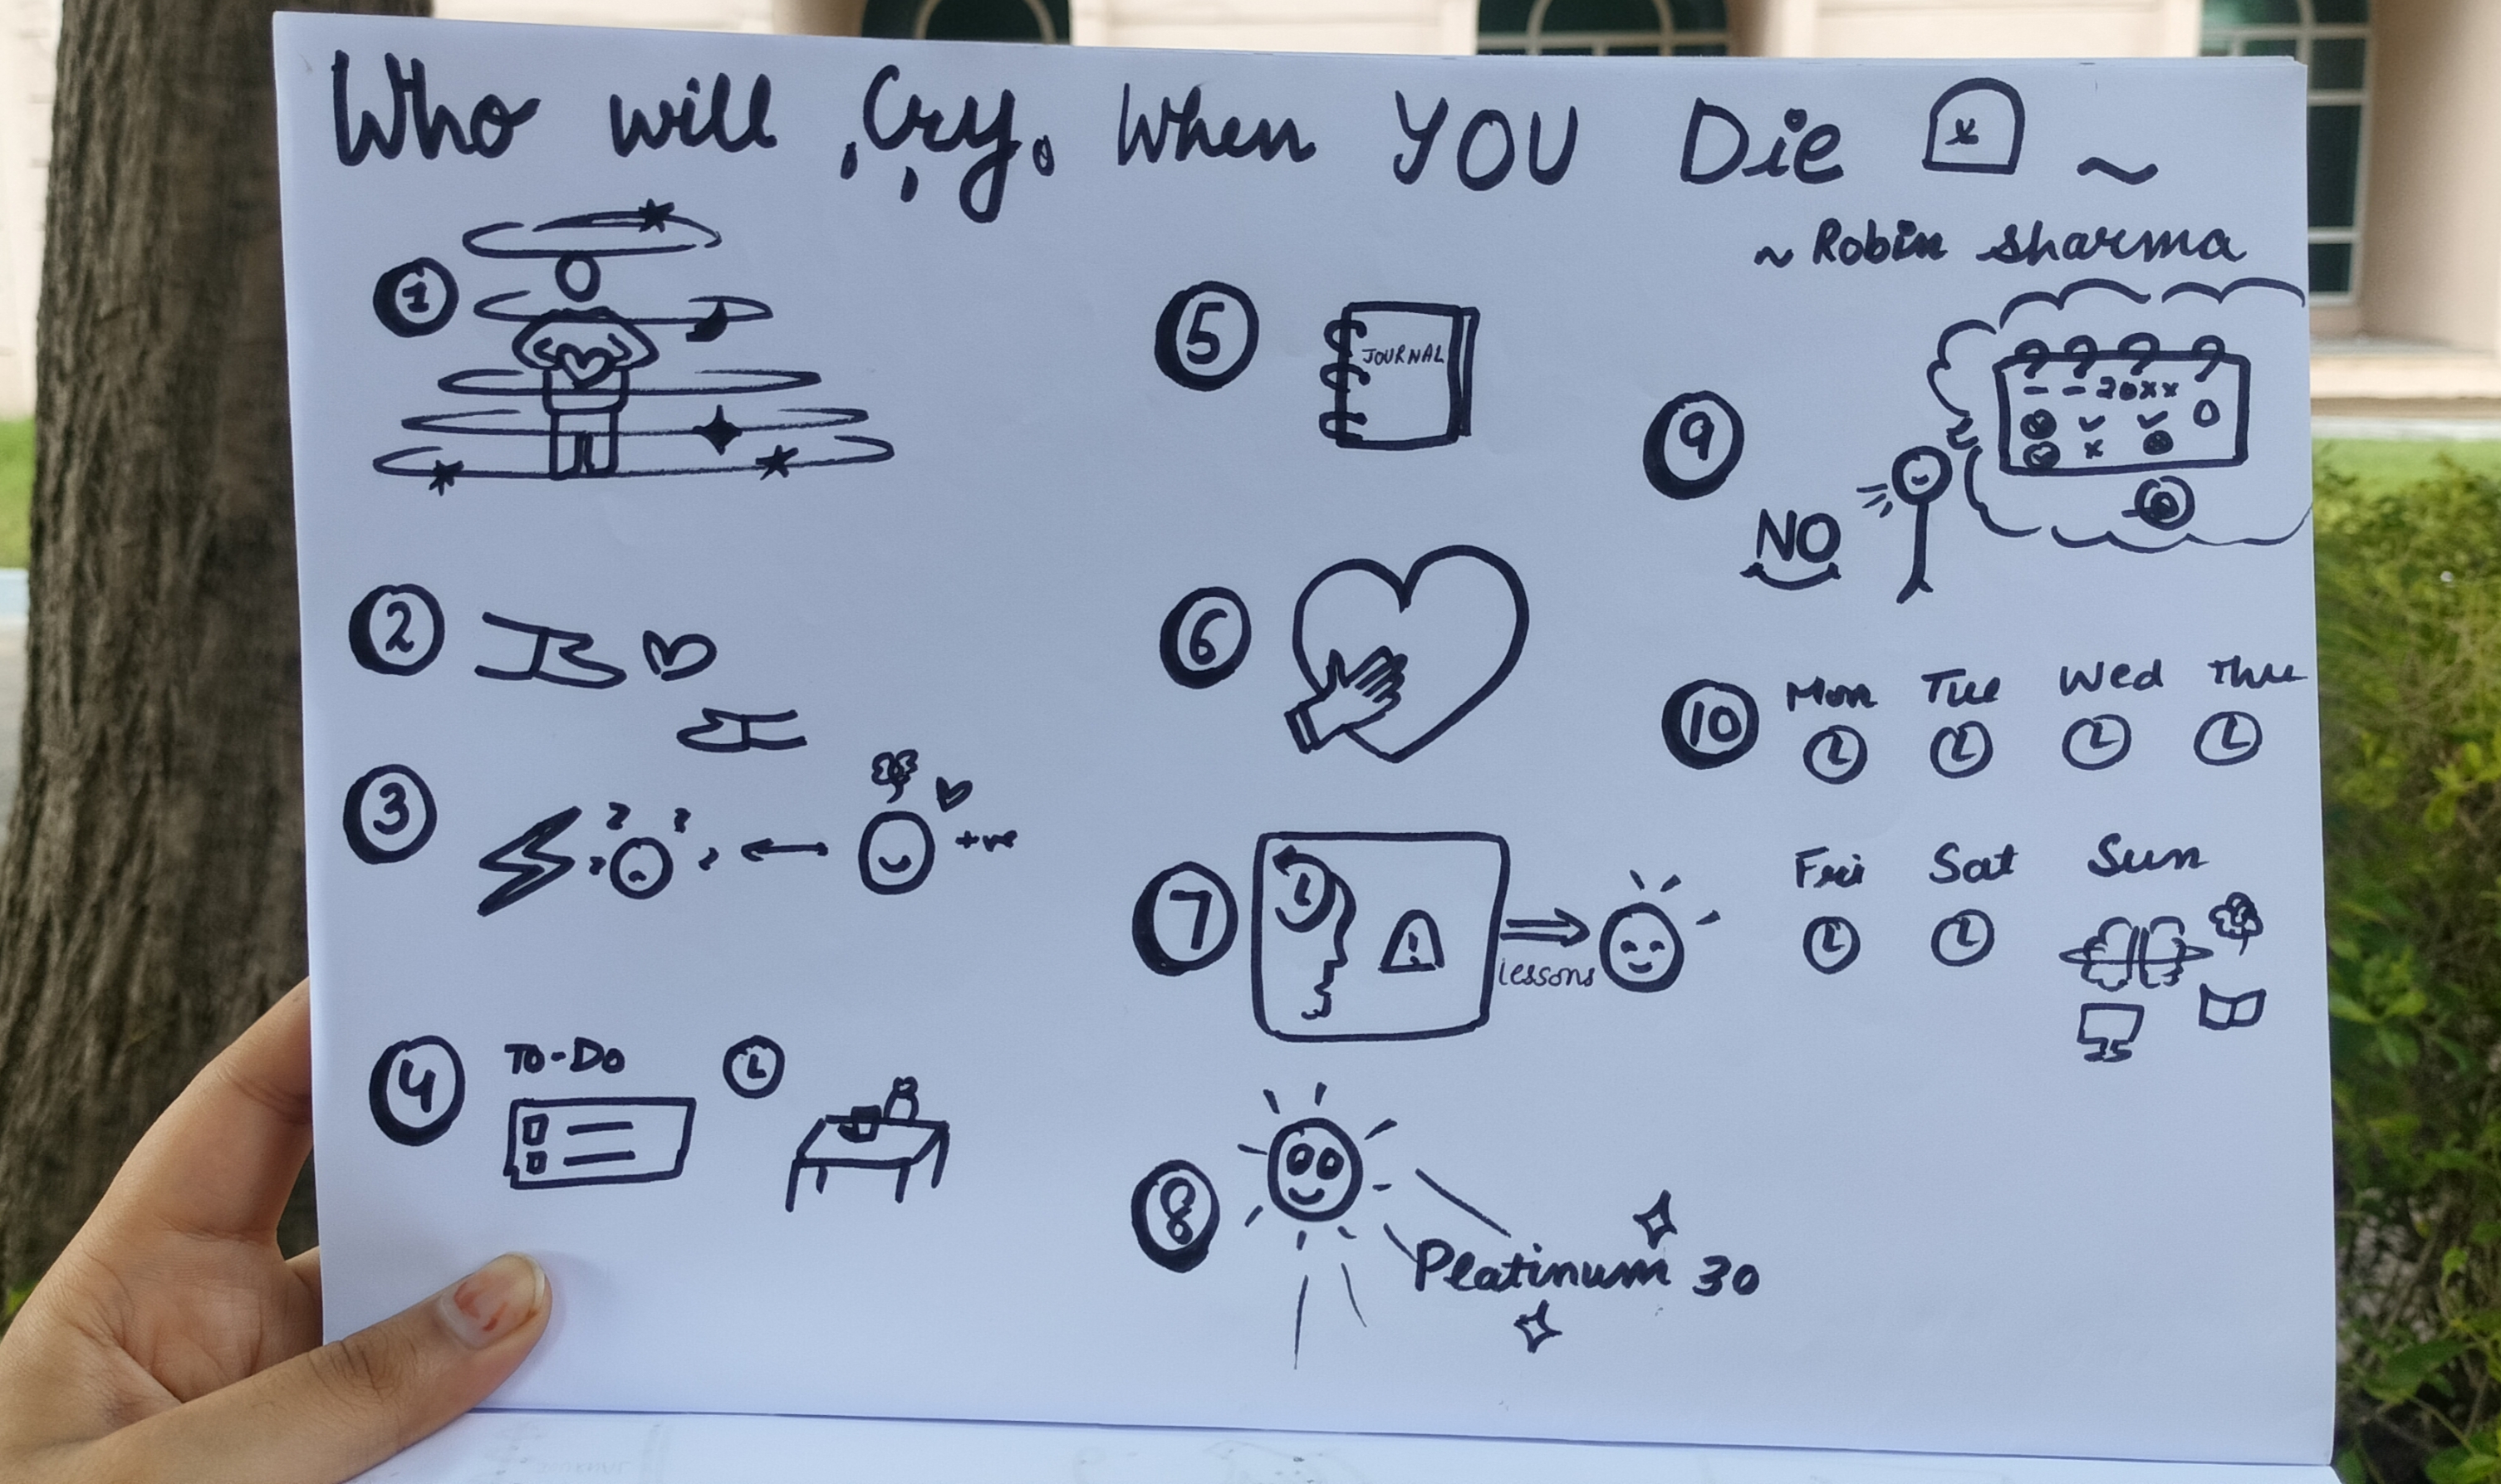 Who will Cry When YOU Die ~
~ Robin Sharma
1
2
3
+ve
4
To-Do
5
JOURNAL
6
7
lessons
8
Platinum 30
9
NO
-- 20xx
10
Mon Tue Wed Thu
Fri Sat Sun